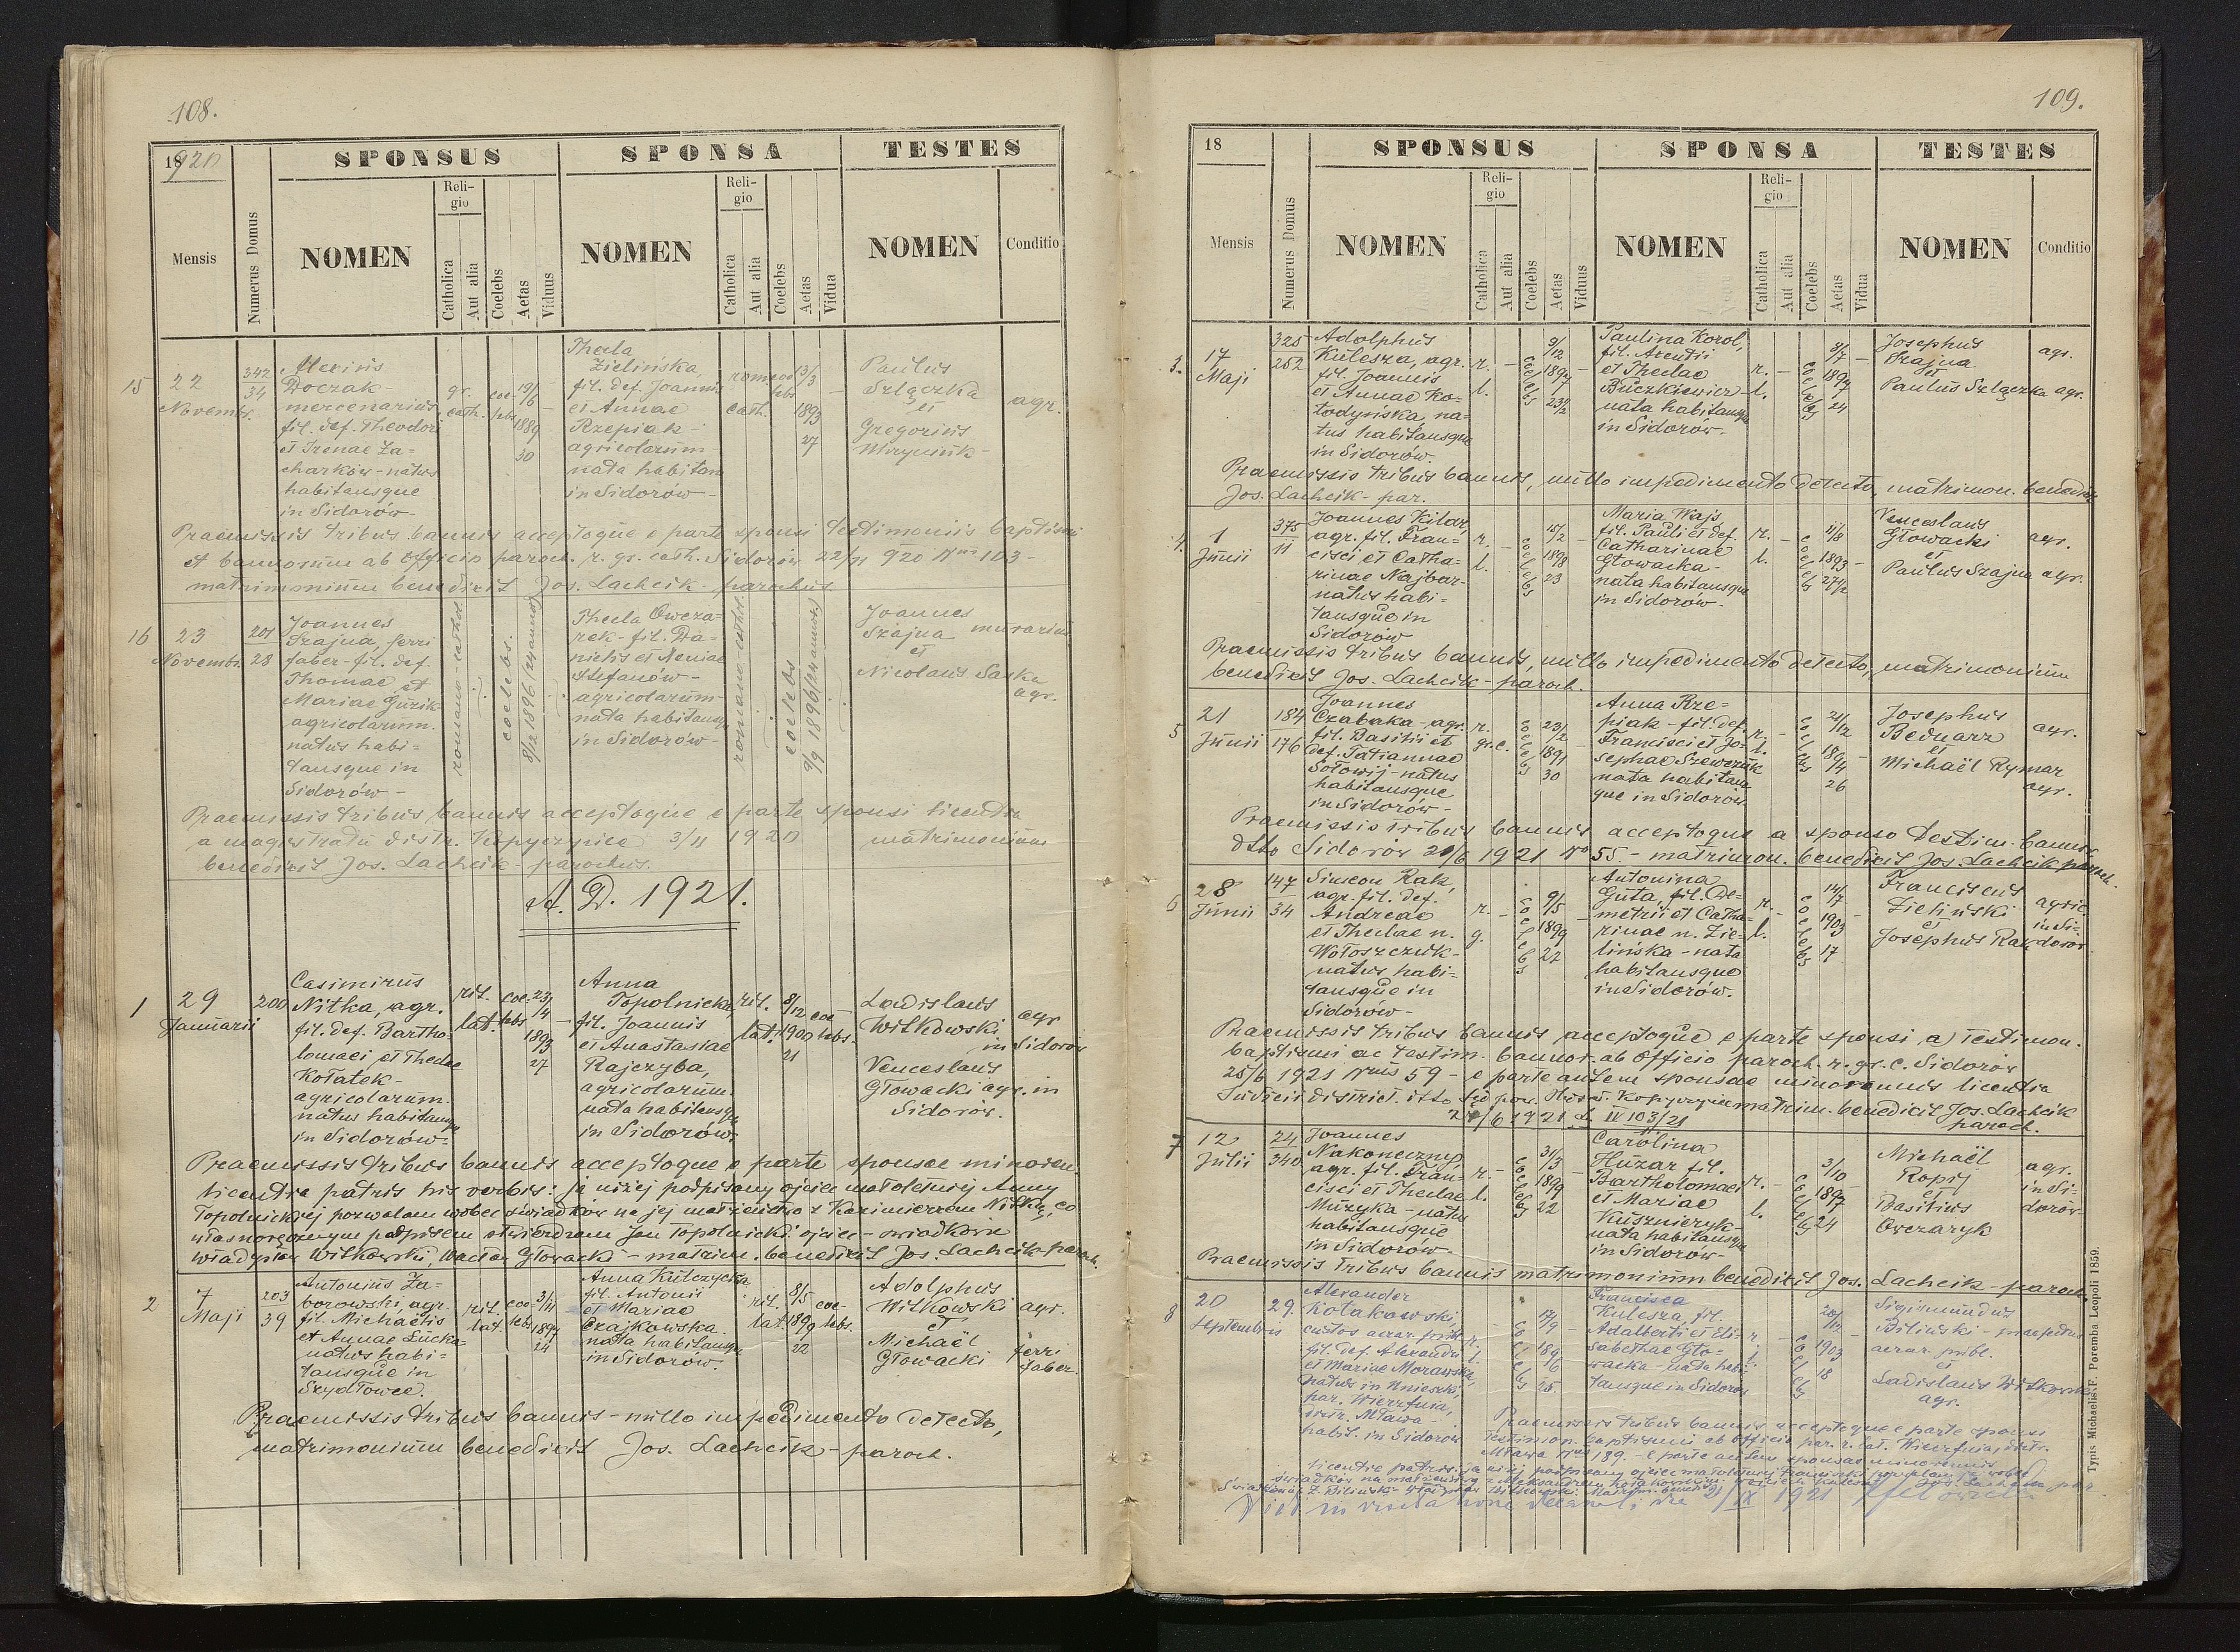 108.
18920
SPONSUS
SPONSA
TESTES
Mensis
Numerus Domus
NOMEN
Religio
Catholica
Aut alia
Coelebs
Aetas
Viduus
NOMEN
Religio
Catholica
Aut alia
Coelebs
Aetas
Vidua
NOMEN
Conditio
15
22
Novembr.
342
34
Alexius
Doczak-
mercenarius
fil. def. Theodori
et Irenae Za=
charków-natus
habitansque
in Sidorów-
gr.
cath.
coe-
lebs
19/6
1889
30
Thecla
Zielińska,
fil. def. Joannis
et Annae
Rzepiak-
agricolarum-
nata habitan
in Sidorów-
rom
cath.
coe
lebs
13/3
1893
27
Paulus
Szlączka
et
Gregorius
agr.
Praemissis tribus bannis acceptoque e parte sponsi testimoniis baptismi
et bannorum ab officio paroch. r. gr. cath. Sidorów 22/11 920 Nris 103-
matrimonium benedixit Jos. Lachcik-parochus
16
23
Novembr.
201
28
Joannes
Szajna, ferri
faber-fil. def.
Thomae et
Mariae Guzik
agricolarum.
natus habi=
tansque in
Sidorów-
romano cathol
coelebs.
8/12 1896 (24 annos)
Thecla Owcza=
rek-fil. Da=
nielis et Xeniae
Stefanów-
agricolarum-
nata habitansq
in Sidorów-
romano cathol.
coelebs
9/9 1896 (24 annos)
Joannes
Szajna murarius
et
Nicolaus Saska
agr.
Praemissis tribus bannis acceptoque e parte sponsi licentia
a magistratu distr. Kopyczynice 3/11 1920 matrimonium
benedixit Jos. Lachcik-parochus.
A. D. 1921.
1
29
Januarii
200
Casimirus
Nitka, agr.
fil. def. Bartho-
lomaei et Theclae
Kołatek-
agricolarum.
natus habitansq
in Sidorów-
rit.
lat.
coe-
lebs
23/4
1893
27
Anna
Topolnicka,
fil. Joannis
et Anastasiae
Rajczyba,
agricolarum.
nata habitansq
in Sidorów.
rit.
lat.
8/12
1900
21
coe-
lebs.
Ladislaus
Witkowski agr
in Sidorów
Venceslaus
Głowacki agr. in
Sidorów.
Praemissis tribus bannis acceptoque e parte sponsae minoren.
licentia patris his verbis: ja niżej podpisany ojciec małoletniej Anny
Topolnickiej pozwalam wobec świadków na jej małżeństwo z Kazimierzem Nitką, co
własnoręcznym podpisem stwierdzam Jan Topolnicki ojciec-świadkowie
Władysław Witkowski, Wacław Głowacki-matrim. benedixit Jos. Lachcik-paroch.
2
7
Maji
203
39
Antonius Za=
borowski, agr.
fil. Michaëlis
et Annae Lucka-
natus habi=
tansque in
Szydłowce.
rit.
lat.
coe-
lebs
3/11
1897
24
Anna Kulczycka
fil. Antonii
et Mariae
Czajkowska.
nata habitansq
in Sidorów.
rit.
lat.
8/5
1899
22
coe-
lebs.
Adolphus
Witkowski agr.
et
Michaël
Głowacki
ferri
faber.
Praemissis tribus bannis-nullo impedimento detecto,
matrimonium benedixit Jos. Lachcik-paroch.
109.
18
SPONSUS
SPONSA
TESTES
Mensis
Numerus Domus
NOMEN
Religio
Catholica
Aut alia
Coelebs
Aetas
Viduus
NOMEN
Religio
Catholica
Aut alia
Coelebs
Aetas
Vidua
NOMEN
Conditio
3.
17
Maji
325
252
Adolphus
Kulesza, agr.
fil. Joannis
et Annae Ko-
łodyńska, na-
tus habitansque
in Sidorów.
r.
l.
coelebs
9/12
1897
23 1/2
Paulina Korol,
fil. Arendii
et Theclae
Buczkiewicz-
nata habitansq
in Sidorów-
r.
l.
coelebs
8/7
1897
24
Josephus
Szajna
et
Paulus Szlączka agr.
agr.
Praemissis tribus bannis, nullo impedimento detecto, matrimon. benedixit
Jos. Lachcik-par.
4.
1
Junii
375
11
Joannes Kilar,
agr. fil. Fran=
cisci et Catha=
rinae Najbar-
natus habi=
tansque in
Sidorów
r.
l.
coelebs
15/2
1898
23
Maria Wajs
fil. Pauli et def.
Catharinae
Głowacka-
nata habitansque
in Sidorów-
r.
l.
coelebs
11/8
1893
27 1/2
Venceslaus
Głowacki
et
Paulus Szajna agr.
agr.
Praemissis tribus bannis, nullo impedimento detecto, matrimonium
benedixit Jos. Lachcik-paroch.
5
21
Junii
184
176
Joannes
Czabaka-agr.
fil. Basilii et
def. Tatiannae
Sołowij-natus
habitansque
in Sidorów-
r.
gr.c.
coelebs
23/2
1891
30
Anna Rze-
piak-fil. def.
Francisci et Jo-
sephae Szewczuk
nata habitans
que in Sidorów
r.
l.
coelebs
21/12
1894
26
Josephus
Bednarz
et
Michaël Rymar
agr.
agr.
Praemissis tribus bannis acceptoque a sponso testim. bannor.
dtto Sidorów 20/6 1921 No 55.-matrimon. benedixit Jos. Lachcik paroch.
6
28
Junii
147
34
Simeon Rak,
agr. fil. def.
Andreae
et Theclae n.
Wołoszczuk-
natus habi=
tansque in
Sidorów-
r.
g.
coelebs
9/5
1899
22
Antonina
Guta, fil. De-
metrii et Catha-
rinae n. Zie-
lińska-nata
habitansque
in Sidorów.
r.
l.
coelebs
14/7
1903
17
Franciscus
Zieliński
et
Josephus Rak
agric.
in Si-
dorów
Praemissis tribus bannis acceptoque e parte sponsi, a) testimon.
baptismi ac testim. bannor. ab officio paroch. r. gr. c. Sidorów
25/6 1921 Nris 59-e parte autem sponsae minorennis licentia
Judicii district. dtto Sąd pow. Kopyczyńce matrim. benedixit Jos. Lachcik
6 1921 L. IV 103/21 paroch.
7
12
Julii
24
340
Joannes
Nakoneczny,
agr. fil. Fran-
cisci et Theclae
Muzyka-natus
habitansque
in Sidorów-
r.
l.
coelebs
31/3
1899
22
Carolina
Huzar fil.
Bartholomaei
et Mariae
Kusznieryk-
nata habitansq
in Sidorów-
r.
l.
coelebs
3/10
1897
24
Michaël
Kopij
et
Basilius
Owczaryk
agr.
in Si-
dorów
Praemissis tribus bannis matrimonium benedixit Jos. Lachcik-paroch.
8
20
Septembris
29.
Alexander
Kołakowski,
custos aerar. publ.
fil. def. Alexandri
et Mariae Morawska,
natus in
par. Wieczfnia,
distr. Mława-
habit. in Sidorów
r.
l.
coelebs
17/9
1896
25.
Francisca
Kulesza, fil.
Adalberti et Eli-
sabethae Gło-
wacka-nata habi-
tansque in Sidorów
r.
l.
coelebs
20/12
1903
18
Sigismundus
Biliński-praepositus
aerar. publ.
et
Ladislaus Witkowski
agr.
Praemissis tribus bannis acceptoque e parte sponsi
testimon. baptismi ab officio par. r. lat. Wieczfnia, distr.
Mława Nris 189.-e parte autem sponsae minorennis
licentia patris: ja niżej podpisany ojciec małoletniej Franciszki pozwalam jej wobec
świadków na małżeństwo z Aleksandrem Kołakowskim.
Typis Michaelis F. Poremba Leopoli 1859.